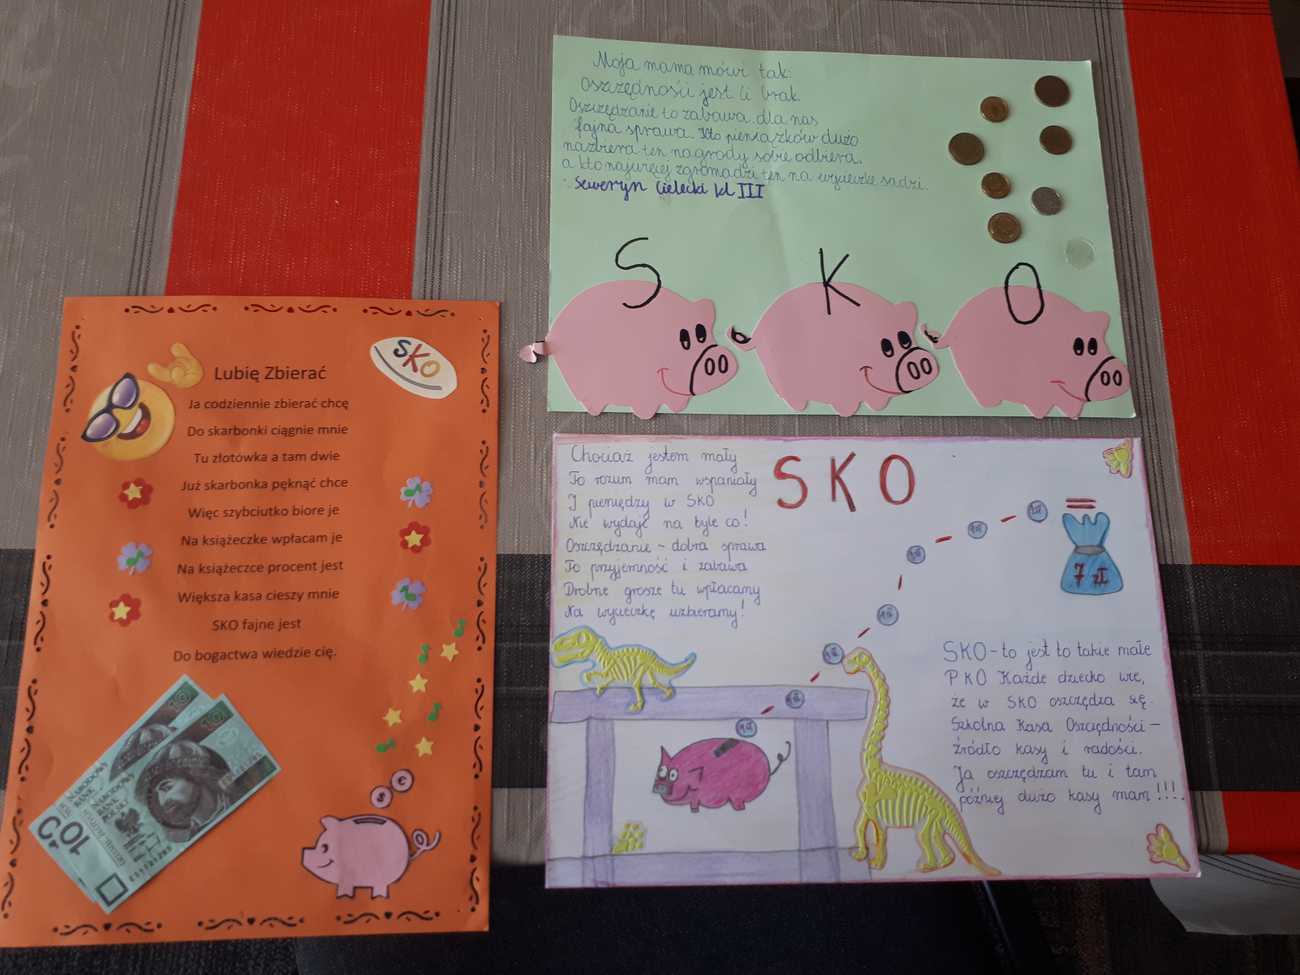 Moja mama mówi tak:
Oszczędności jest ci brak.
Oszczędzanie to zabawa dla nas
fajna sprawa. Kto pieniążków dużo
nazbiera ten nagrody sobie odbiera.
a kto najwięcej zgromadzi ten na wycieczkę sadzi.
Seweryn Cielecki kl III
S K O
SKO
Lubię Zbierać
Ja codziennie zbierać chcę
Do skarbonki ciągnie mnie
Tu złotówka a tam dwie
Już skarbonka pęknąć chce
Więc szybciutko biore je
Na książeczke wpłacam je
Na książeczce procent jest
Większa kasa cieszy mnie
SKO fajne jest
Do bogactwa wiedzie cię.
NARODOWY
10
$ €
Chociaż jestem mały
To rozum mam wspaniały
I pieniędzy w SKO
Nie wydaję na byle co!
Oszczędzanie - dobra sprawa
To przyjemność i zabawa
Drobne grosze tu wpłacamy
Na wycieczkę uzbieramy!
SKO
=
7 zł
SKO - to jest to takie małe
PKO Każde dziecko wie,
że w SKO oszczędza się.
Szkolna Kasa Oszczędności -
źródło kasy i radości.
Ja oszczędzam tu i tam
później dużo kasy mam!!!.